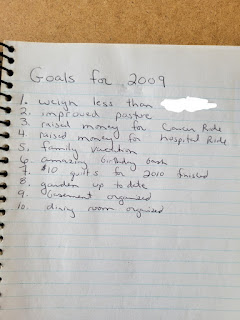 Goals for 2009
1. weigh less than
2. improved posture
3. raised money for Cancer Ride
4. raised money for Hospital Ride
5. family vacation
6. amazing birthday bash
7. $10 quilts for 2010 finished
8. garden up to date
9. basement organized
10. dining room organized